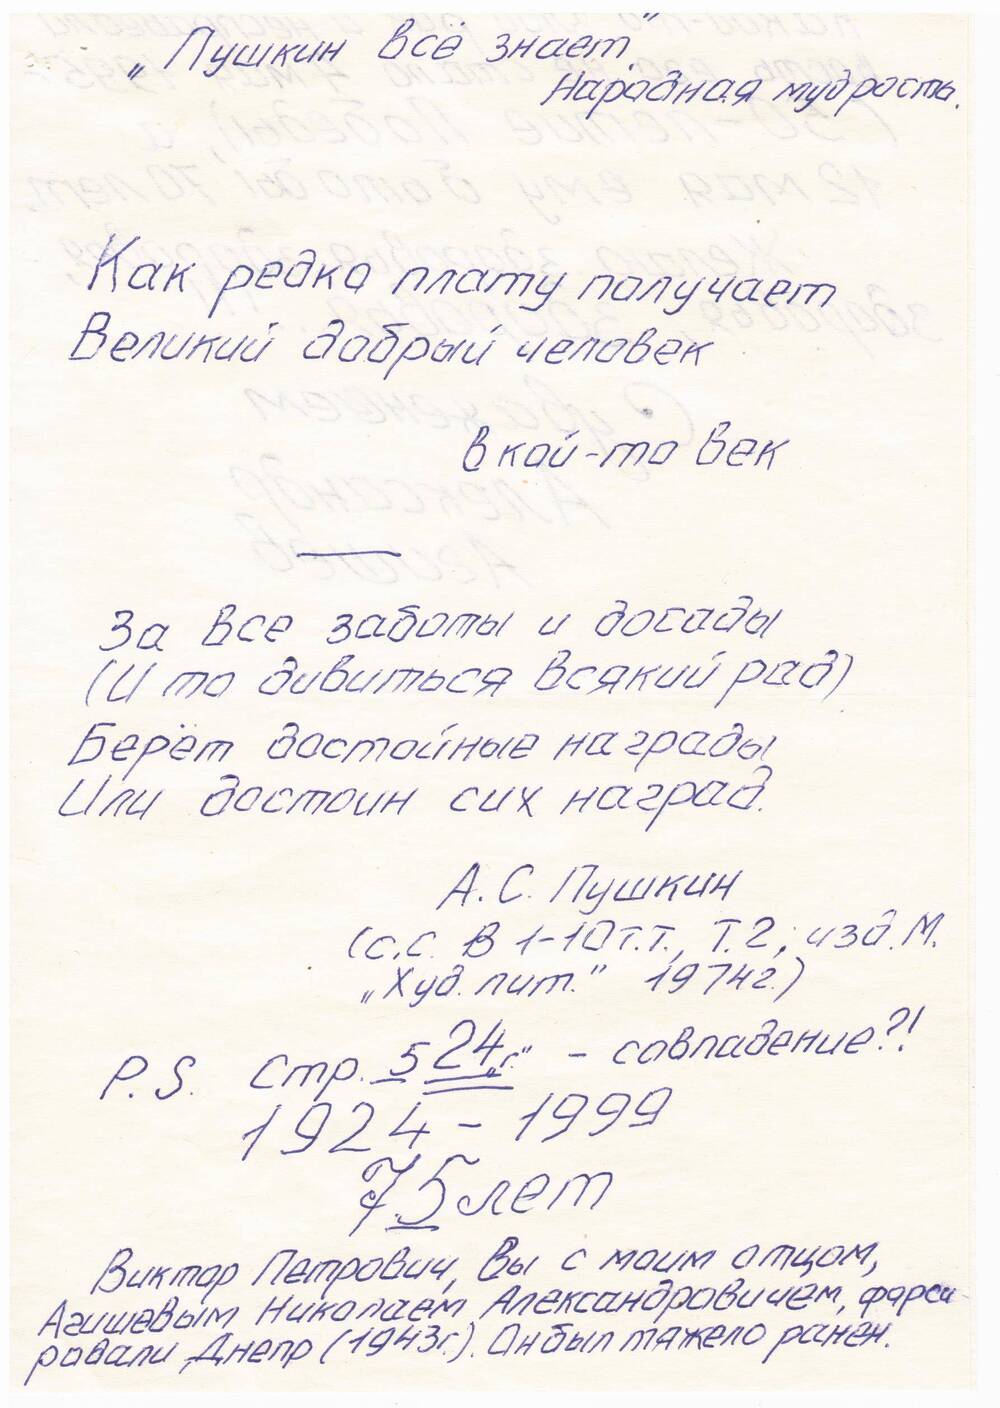 „Пушкин всё знает."
Народная мудрость.
Как редко плату получает
Великий добрый человек
в кой-то век
За все заботы и досады
(И то дивиться всякий рад)
Берёт достойные награды
Или достоин сих наград.
А.С. Пушкин
(с.с. в 1-10 т.т., Т.2; изд. М.
„Худ. лит." 1974г.)
P.S. Стр. 524„г." - совпадение?!
1924 - 1999
75 лет
Виктор Петрович, Вы с моим отцом,
Агишевым Николаем Александровичем, форси
ровали Днепр (1943г.). Он был тяжело ранен.